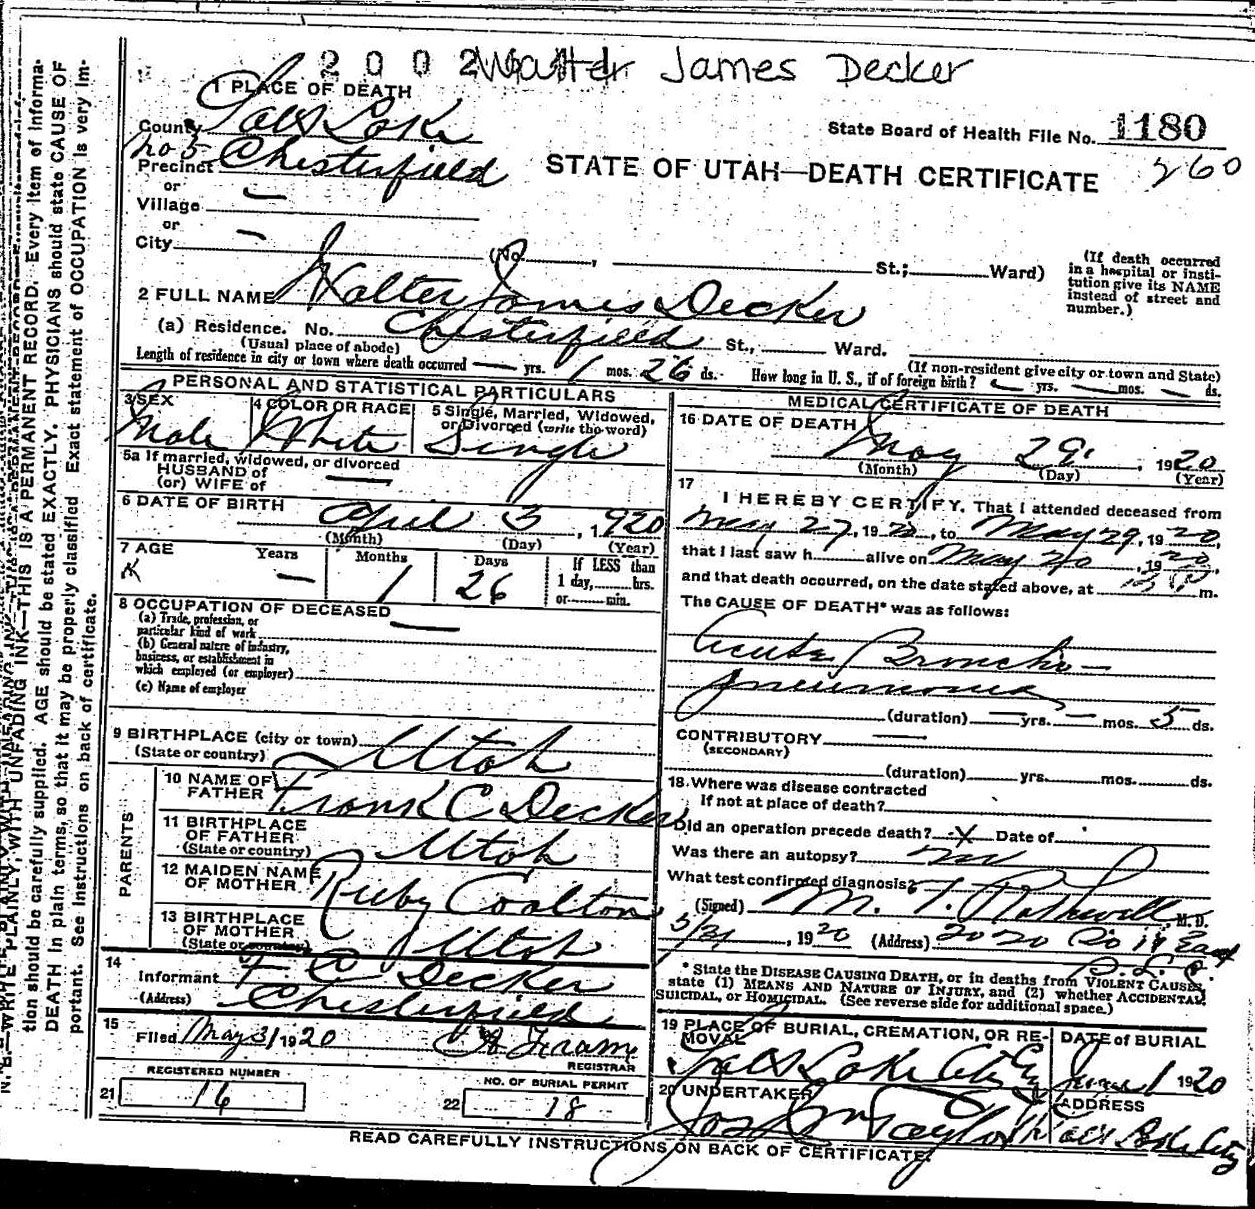 2002 Walter James Decker
1 PLACE OF DEATH
County Salt Lake
State Board of Health File No. 1180
260
No 5
Precinct Chesterfield
STATE OF UTAH—DEATH CERTIFICATE
or
Village —
or
City — (No. , St.; Ward)
(If death occurred
in a hospital or insti-
tution give its NAME
instead of street and
number.)
2 FULL NAME Walter James Decker
(a) Residence. No. Chesterfield St., Ward.
(Usual place of abode)
(If non-resident give city or town and State)
Length of residence in city or town where death occurred — yrs. 1 mos. 26 ds. How long in U. S., if of foreign birth? — yrs. — mos. — ds.
PERSONAL AND STATISTICAL PARTICULARS
3 SEX
Male
4 COLOR OR RACE
White
5 Single, Married, Widowed,
or Divorced (write the word)
Single
5a If married, widowed, or divorced
HUSBAND of
(or) WIFE of —
6 DATE OF BIRTH April 3, 1920
(Month) (Day) (Year)
7 AGE Years Months Days If LESS than
1 day, hrs.
or min.
— 1 26
8 OCCUPATION OF DECEASED —
(a) Trade, profession, or
particular kind of work
(b) General nature of industry,
business, or establishment in
which employed (or employer)
(c) Name of employer
9 BIRTHPLACE (city or town)
(State or country) Utah
PARENTS
10 NAME OF
FATHER Frank C Decker
11 BIRTHPLACE
OF FATHER
(State or country) Utah
12 MAIDEN NAME
OF MOTHER Ruby Coalton
13 BIRTHPLACE
OF MOTHER
(State or country) Utah
14
Informant F C Decker
(Address) Chesterfield
15
Filed May 31 1920
REGISTRAR
REGISTERED NUMBER
21 16
NO. OF BURIAL PERMIT
22 18
MEDICAL CERTIFICATE OF DEATH
16 DATE OF DEATH
May 29, 1920
(Month) (Day) (Year)
17
I HEREBY CERTIFY, That I attended deceased from
May 27, 1920, to May 29, 1920,
that I last saw h alive on May 20, 1920,
and that death occurred, on the date stated above, at m.
The CAUSE OF DEATH* was as follows:
Acute Broncho-
pneumonia
(duration) — yrs. — mos. 5 ds.
CONTRIBUTORY —
(SECONDARY)
(duration) yrs. mos. ds.
18. Where was disease contracted
If not at place of death?
Did an operation precede death? X Date of
Was there an autopsy? no
What test confirmed diagnosis?
(Signed) M. T. Rothwell, M. D.
5/31, 1920 (Address) 2020 So 11 East
S. L. C.
* State the DISEASE CAUSING DEATH, or in deaths from VIOLENT CAUSES,
state (1) MEANS AND NATURE OF INJURY, and (2) whether ACCIDENTAL,
SUICIDAL, or HOMICIDAL. (See reverse side for additional space.)
19 PLACE OF BURIAL, CREMATION, OR RE-
MOVAL
Salt Lake City
DATE of BURIAL
June 1 1920
20 UNDERTAKER
Jos Wm Taylor
ADDRESS
Salt Lake City
READ CAREFULLY INSTRUCTIONS ON BACK OF CERTIFICATE.
N. B.—WRITE PLAINLY, WITH UNFADING INK—THIS IS A PERMANENT RECORD. Every item of informa-
tion should be carefully supplied. AGE should be stated EXACTLY. PHYSICIANS should state CAUSE OF
DEATH in plain terms, so that it may be properly classified. Exact statement of OCCUPATION is very im-
portant. See instructions on back of certificate.